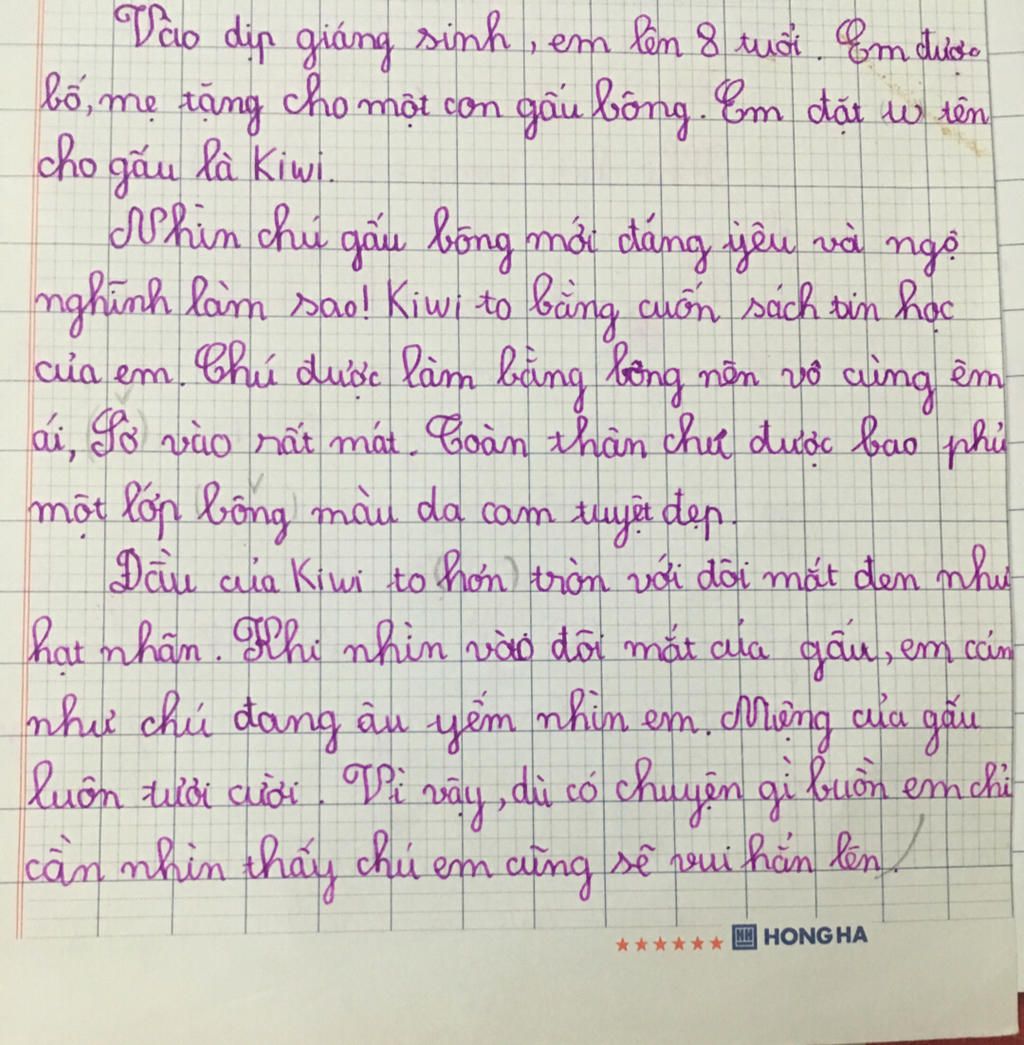 Vào dịp giáng sinh, em lên 8 tuổi. Em được
bố, mẹ tặng cho một con gấu bông. Em đặt w tên
cho gấu là Kiwi.
Nhìn chú gấu bông mới đáng yêu và ngộ
nghĩnh làm sao! Kiwi to bằng cuốn sách tin học
của em. Chú được làm bằng bông nên vô cùng êm
ái, (Sờ) vào rất mát. Toàn thân chú được bao phủ
một lớp bông) màu da cam tuyệt đẹp.
Đầu của Kiwi to (hơn) tròn với đôi mắt đen như
hạt nhãn. Khi nhìn vào đôi mắt của gấu, em cảm
như chú đang âu yếm nhìn em. Miệng của gấu
luôn tươi cười. Vì vậy, dù có chuyện gì buồn em chỉ
cần nhìn thấy chú em cũng sẽ vui hẳn lên.
HH HONG HA